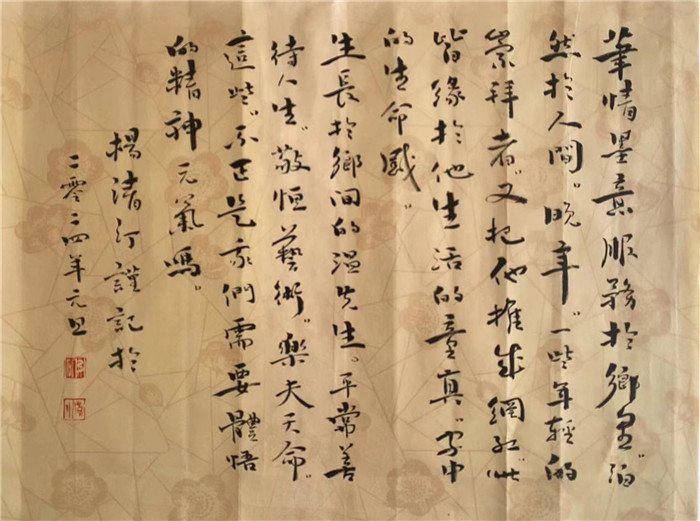 筆情墨意服務於鄉里。泊
然於人間。晚年。一些年輕的
崇拜者。又把他推成網紅。此
皆緣於他生活的童真。字中
的生命感。
生長於鄉間的温先生。平常善
待人生。敬恒藝術。樂夫天命。
這些。不正是我們需要體悟
的精神元氣嗎。
楊清汀謹記於
二零二四年元旦